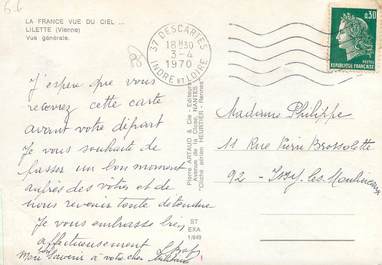 6.6
LA FRANCE VUE DU CIEL ...
LILETTE (Vienne)
Vue générale.
37 DESCARTES
18H30
3-4
1970
INDRE ET LOIRE
0,30
REPUBLIQUE FRANÇAISE
POSTES
J'espère que vous
recevrez cette carte
avant votre départ
Je vous souhaite de
passer un bon moment
auprès des vôtres et de
nous revenir toute détendue
Je vous embrasse bien
affectueusement
Mon Souvenir à votre cher
Pierre ARTAUD et Cie - Editeurs
NANTES
Cliché aérien HEURTIER - Rennes
ST
EXA
Madame Philippe
11 Rue Pierre Brossolette
92 - Issy les Moulineaux